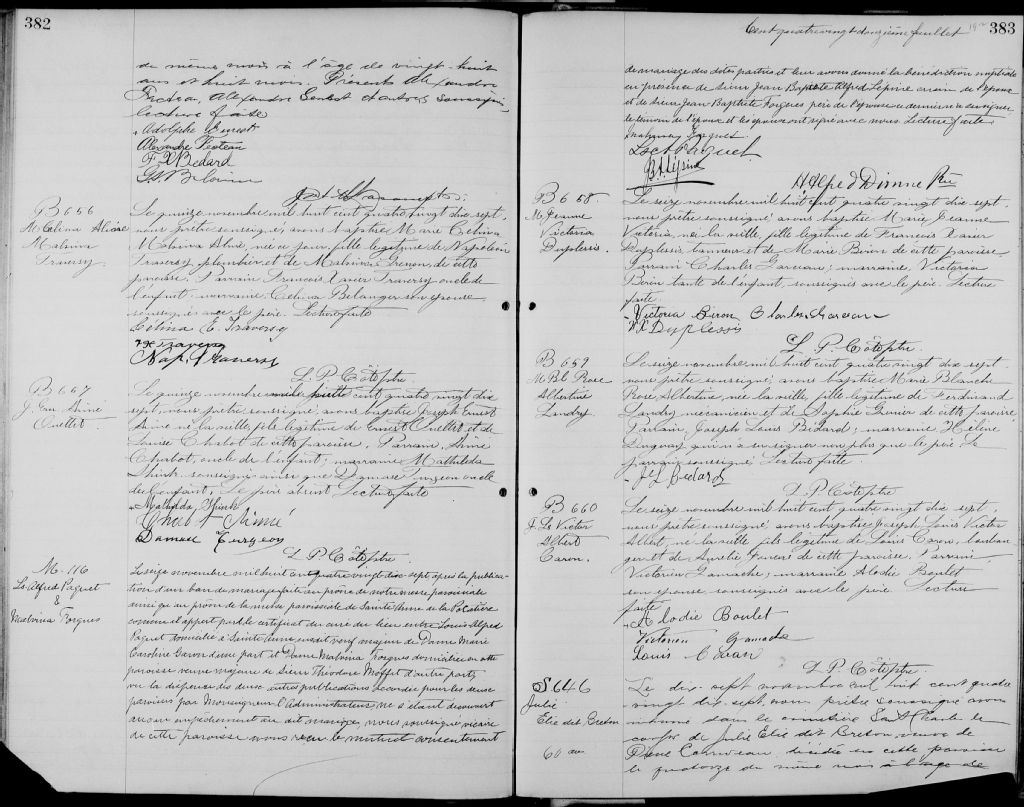 382
de même mois à l'âge de vingt-huit
ans et huit mois. Présents Alexandre
Alexandre et autres soussignés
lecture faite
Adolphe
Alexandre
F. X Bedard
B 656
M. Celina Alvisé
Malvina
Traversy.
Le quinze novembre mil huit cent quatre vingt dix sept,
nous prêtre soussigné, avons baptisé Marie Celina
Malvina née ce jour, fille legitime de Napoléon
Traversy, plombier, et de Malvina Grenon, de cette
paroisse. Parrain François Xavier Traversy oncle de
l'enfant; marraine Celina Belanger son épouse
soussignés avec le père. Lecture faite
Celina E. Traversy
F X Traversy
Nap. Traversy
L. P. Côté ptre
B 657
J. Ern. Aimé
Ouellet
Le quinze novembre mil huit cent quatre vingt dix
sept, nous prêtre soussigné, avons baptisé Joseph Ernest
Aimé né la veille, fils légitime de Ernest Ouellet et de
Louise Chabot de cette paroisse. Parrain, Aimé
Chabot, oncle de l'enfant; marraine Mathilda
soussignés ainsi que Damase Turgeon oncle
de l'enfant. Le père absent. Lecture faite
Mathilda
Chabot Aimé
Damase Turgeon
L. P. Côté ptre
M. 116
Ls Alfred Paquet
&
Malvina Forgues
Le seize novembre mil huit cent quatre vingt dix sept, après la publica-
tion d'un ban de mariage faite au prône de notre messe paroissiale
ainsi qu'au prône de la messe paroissiale de Sainte Anne de la Pocatière
comme il appert par le certificat du curé du lieu entre Louis Alfred
Paquet domicilié à Sainte Anne veuf majeur de Dame Marie
Caroline Garon d'une part et Dame Malvina Forgues domiciliée en cette
paroisse veuve majeure de Sieur Théodore Moffet d'autre part;
vu la dispense des deux autres publications accordée pour les deux
paroisses par Monseigneur l'Administrateur, ne s'étant découvert
aucun empêchement au dit mariage, nous soussigné vicaire
de cette paroisse avons reçu le mutuel consentement
Cent quatrevingt douzième feuillet
192
383
de mariage des dites parties et leur avons donné la bénédiction nuptiale
en présence de Sieur Jean Baptiste Alfred Lépine cousin de l'époux
et de Sieur Jean-Baptiste Forgues père de l'épouse ce dernier
le témoin de l'époux et les époux ont signé avec nous. Lecture faite.
Malvina Forgues
L. A. Paquet
J B A Lépine
H. Alfred Dionne Ptre
B 658.
M. Jeanne
Victoria
Duplessis.
Le seize novembre mil huit cent quatre vingt dix sept,
nous prêtre soussigné, avons baptisé Marie Jeanne
Victoria, née la veille, fille legitime de Francois Xavier
Duplessis tanneur et de Marie Biron de cette paroisse
Parrain Charles Garneau; marraine, Victoria
Biron tante de l'enfant, soussignés avec le père. Lecture
faite
Victoria Biron Charles Garneau
F X Duplessis
L. P. Côté ptre.
B 659
M Bl. Rose
Albertine
Landry
Le seize novembre mil huit cent quatre vingt dix sept
nous prêtre soussigné, avons baptisé Marie Blanche
Rose Albertine, née la veille, fille légitime de Ferdinand
Landry mecanicien et de Sophie Grenier de cette paroisse
Parrain, Joseph Louis Bédard; marraine Hélène
Duguay qui n'a su signer non plus que le père. Le
parrain soussigné. Lecture faite
J L Bedard
L. P Côté ptre
B 660
J. Ls Victor
Albert
Caron.
Le seize novembre mil huit cent quatre vingt dix sept,
nous prêtre soussigné, avons baptisé Joseph Louis Victor
Albert, né la veille, fils légitime de Louis Caron, boulan
ger et de Aurélie de cette paroisse. Parrain
Victorien Gamache; marraine Alodie Boulet
son épouse soussignés avec le père. Lecture
faite
Alodie Boulet
Victorien Gamache
Louis Caron
L. P Côté ptre.
S 646
Julie
Elie dit Breton
60 ans
Le dix sept novembre mil huit cent quatre
vingt dix sept, nous prêtre soussigné avons
inhumé dans le cimetière Saint Charles le
corps de Julie Elie dit Breton, veuve de
Pierre Corriveau, décédée en cette paroisse
le quatorze du même mois à l'âge de